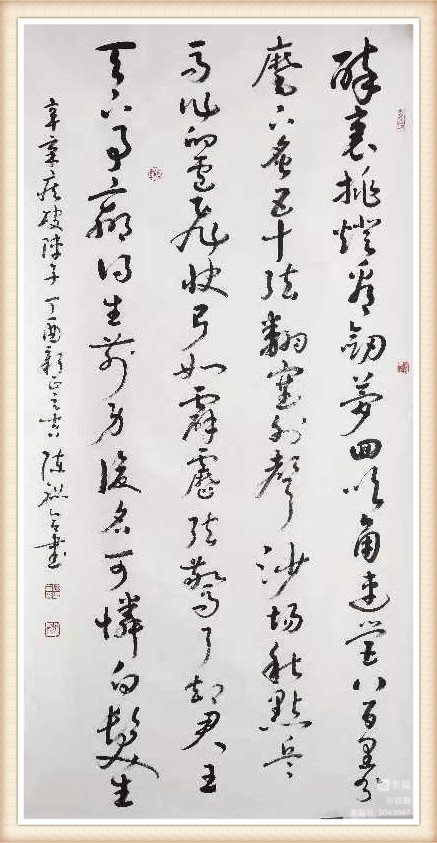 醉裏挑燈看劍夢回吹角連營八百里分
麾下炙五十弦翻塞外聲沙場秋點兵
馬作的盧飛快弓如霹靂弦驚了却君王
天下事贏得生前身後名可憐白髮生
辛棄疾破陣子 丁酉新正之吉 陳 書
美篇
美篇号:3043647